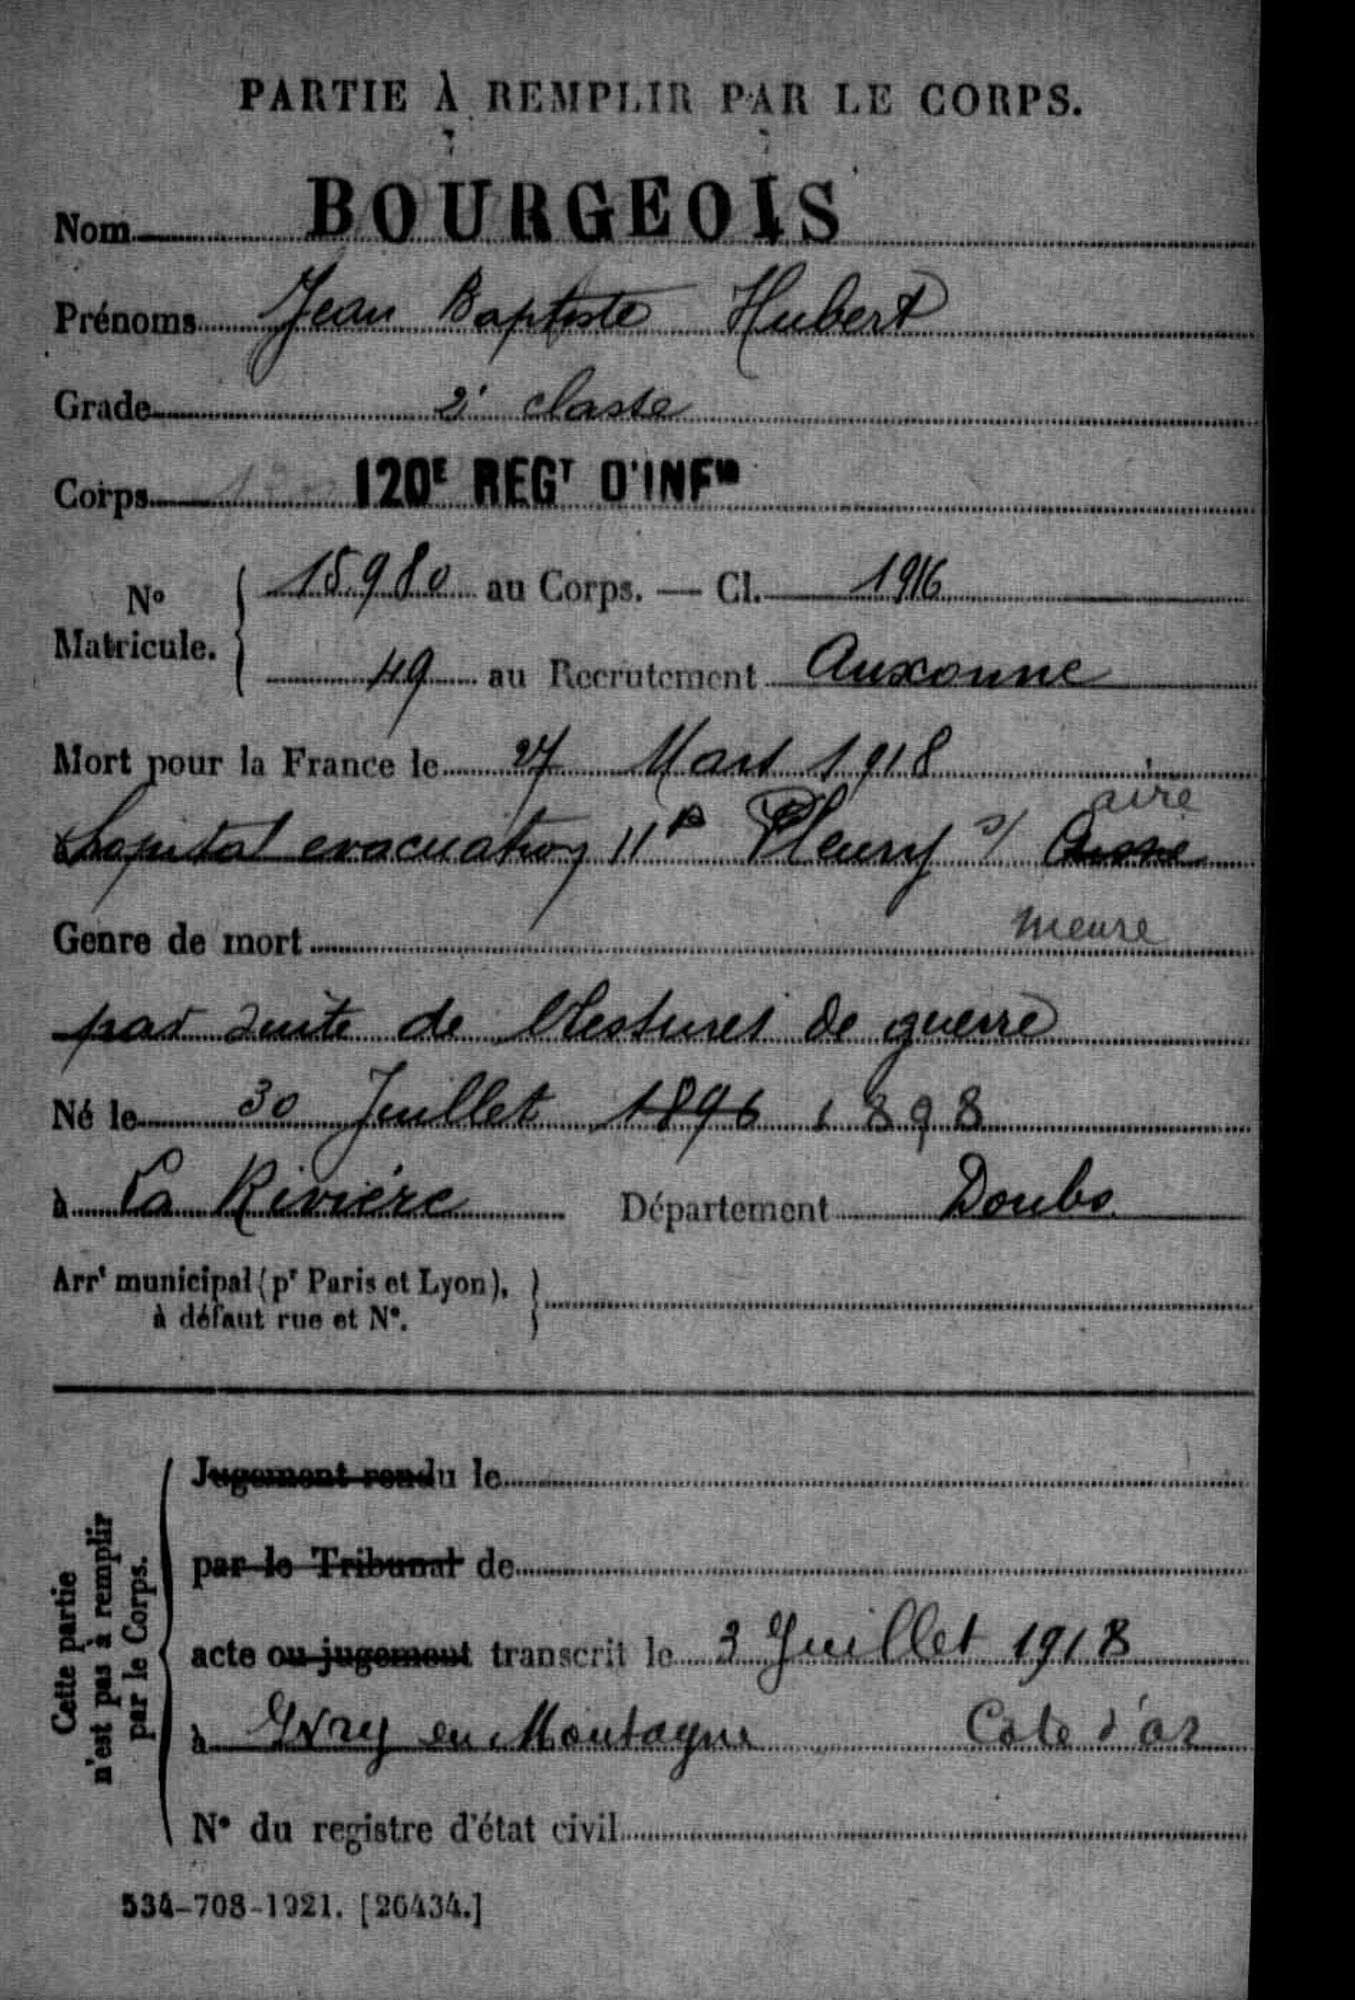 PARTIE À REMPLIR PAR LE CORPS.
Nom BOURGEOIS
Prénoms Jean Baptiste Hubert
Grade 2e classe
Corps 120E REGT D'INFIE
No Matricule. 15980 au Corps. — Cl. 1916
49 au Recrutement Auxonne
Mort pour la France le 27 Mars 1918
aire
hopital evacuation 11B Fleury s/
Genre de mort meuse
par suite de blessures de guerre
Né le 30 Juillet 1896 1898
à La Rivière Département Doubs
Arrt municipal (pr Paris et Lyon),
à défaut rue et No.
Cette partie
n'est pas à remplir
par le Corps.
Jugement rendu le
par le Tribunal de
acte ou jugement transcrit le 3 Juillet 1918
à Ivry en Montagne Cote d'or
No du registre d'état civil
534-708-1921. [26434.]